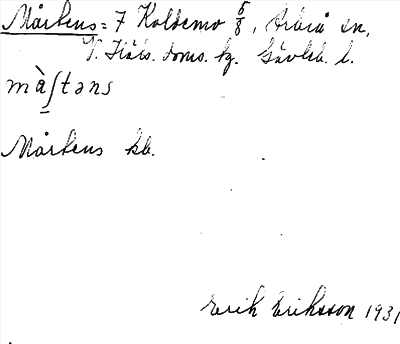 Mårtens = 7 Koldemo 5/8, Arbrå sn,
V. Häls. doms. tg. Gävleb. l.
mà̱ʃtəns
Mårtens kb.
Erik Eriksson 1931